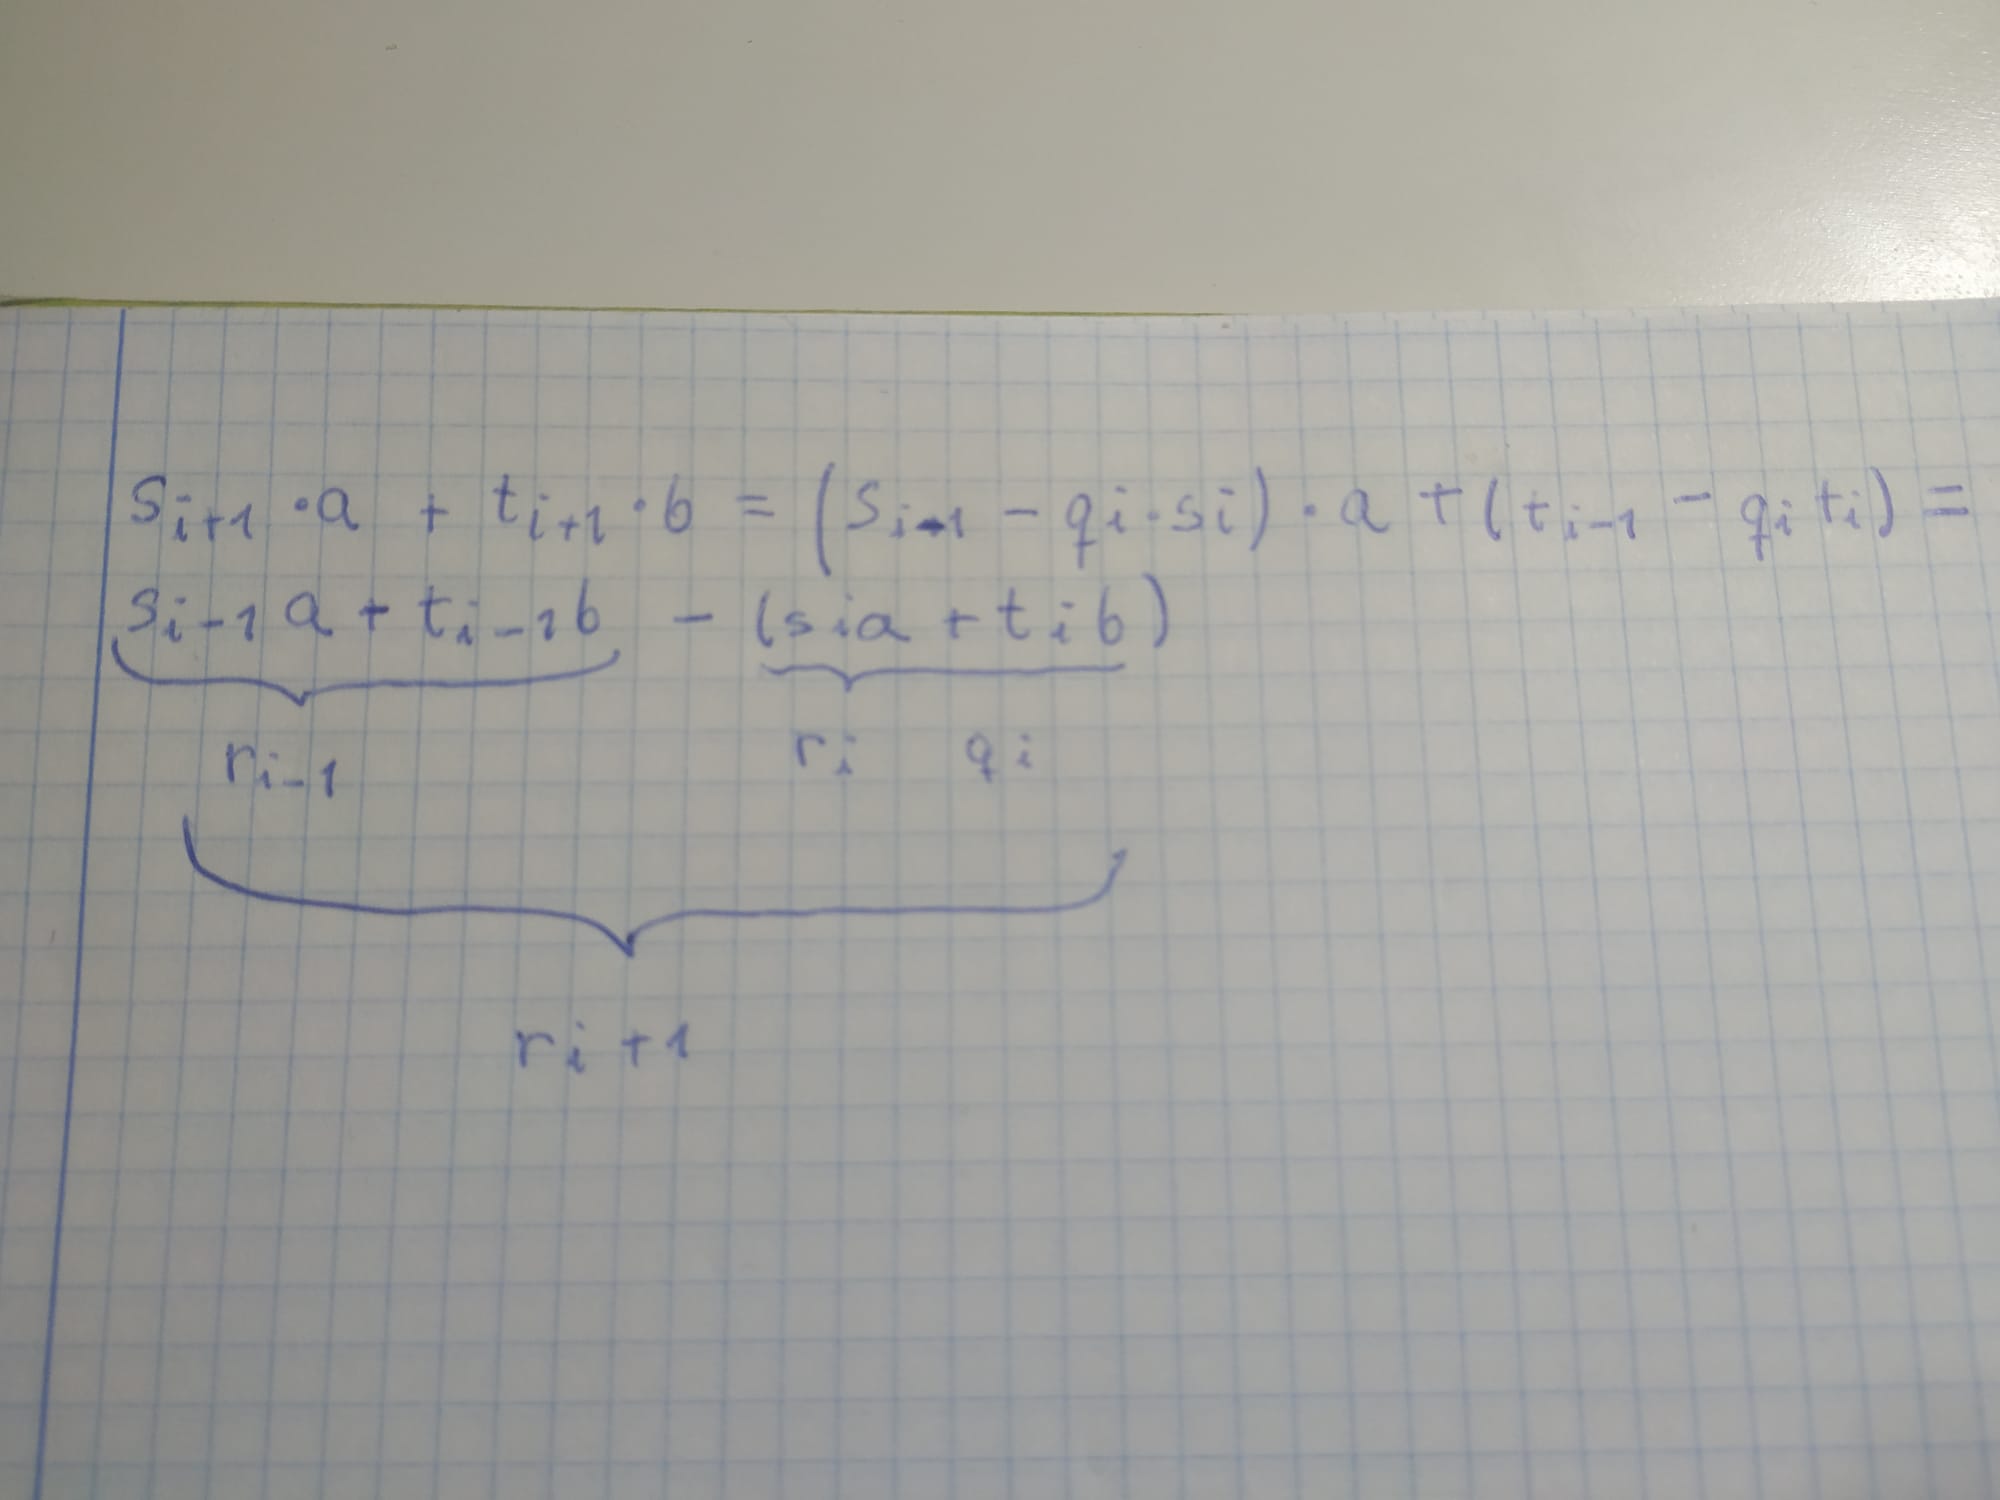 s_{i+1} · a + t_{i+1} · b = (s_{i-1} - q_i · s_i) · a + (t_{i-1} - q_i t_i) =
s_{i-1} a + t_{i-1} b - (s_i a + t_i b)
r_{i-1} r_i q_i
r_{i+1}